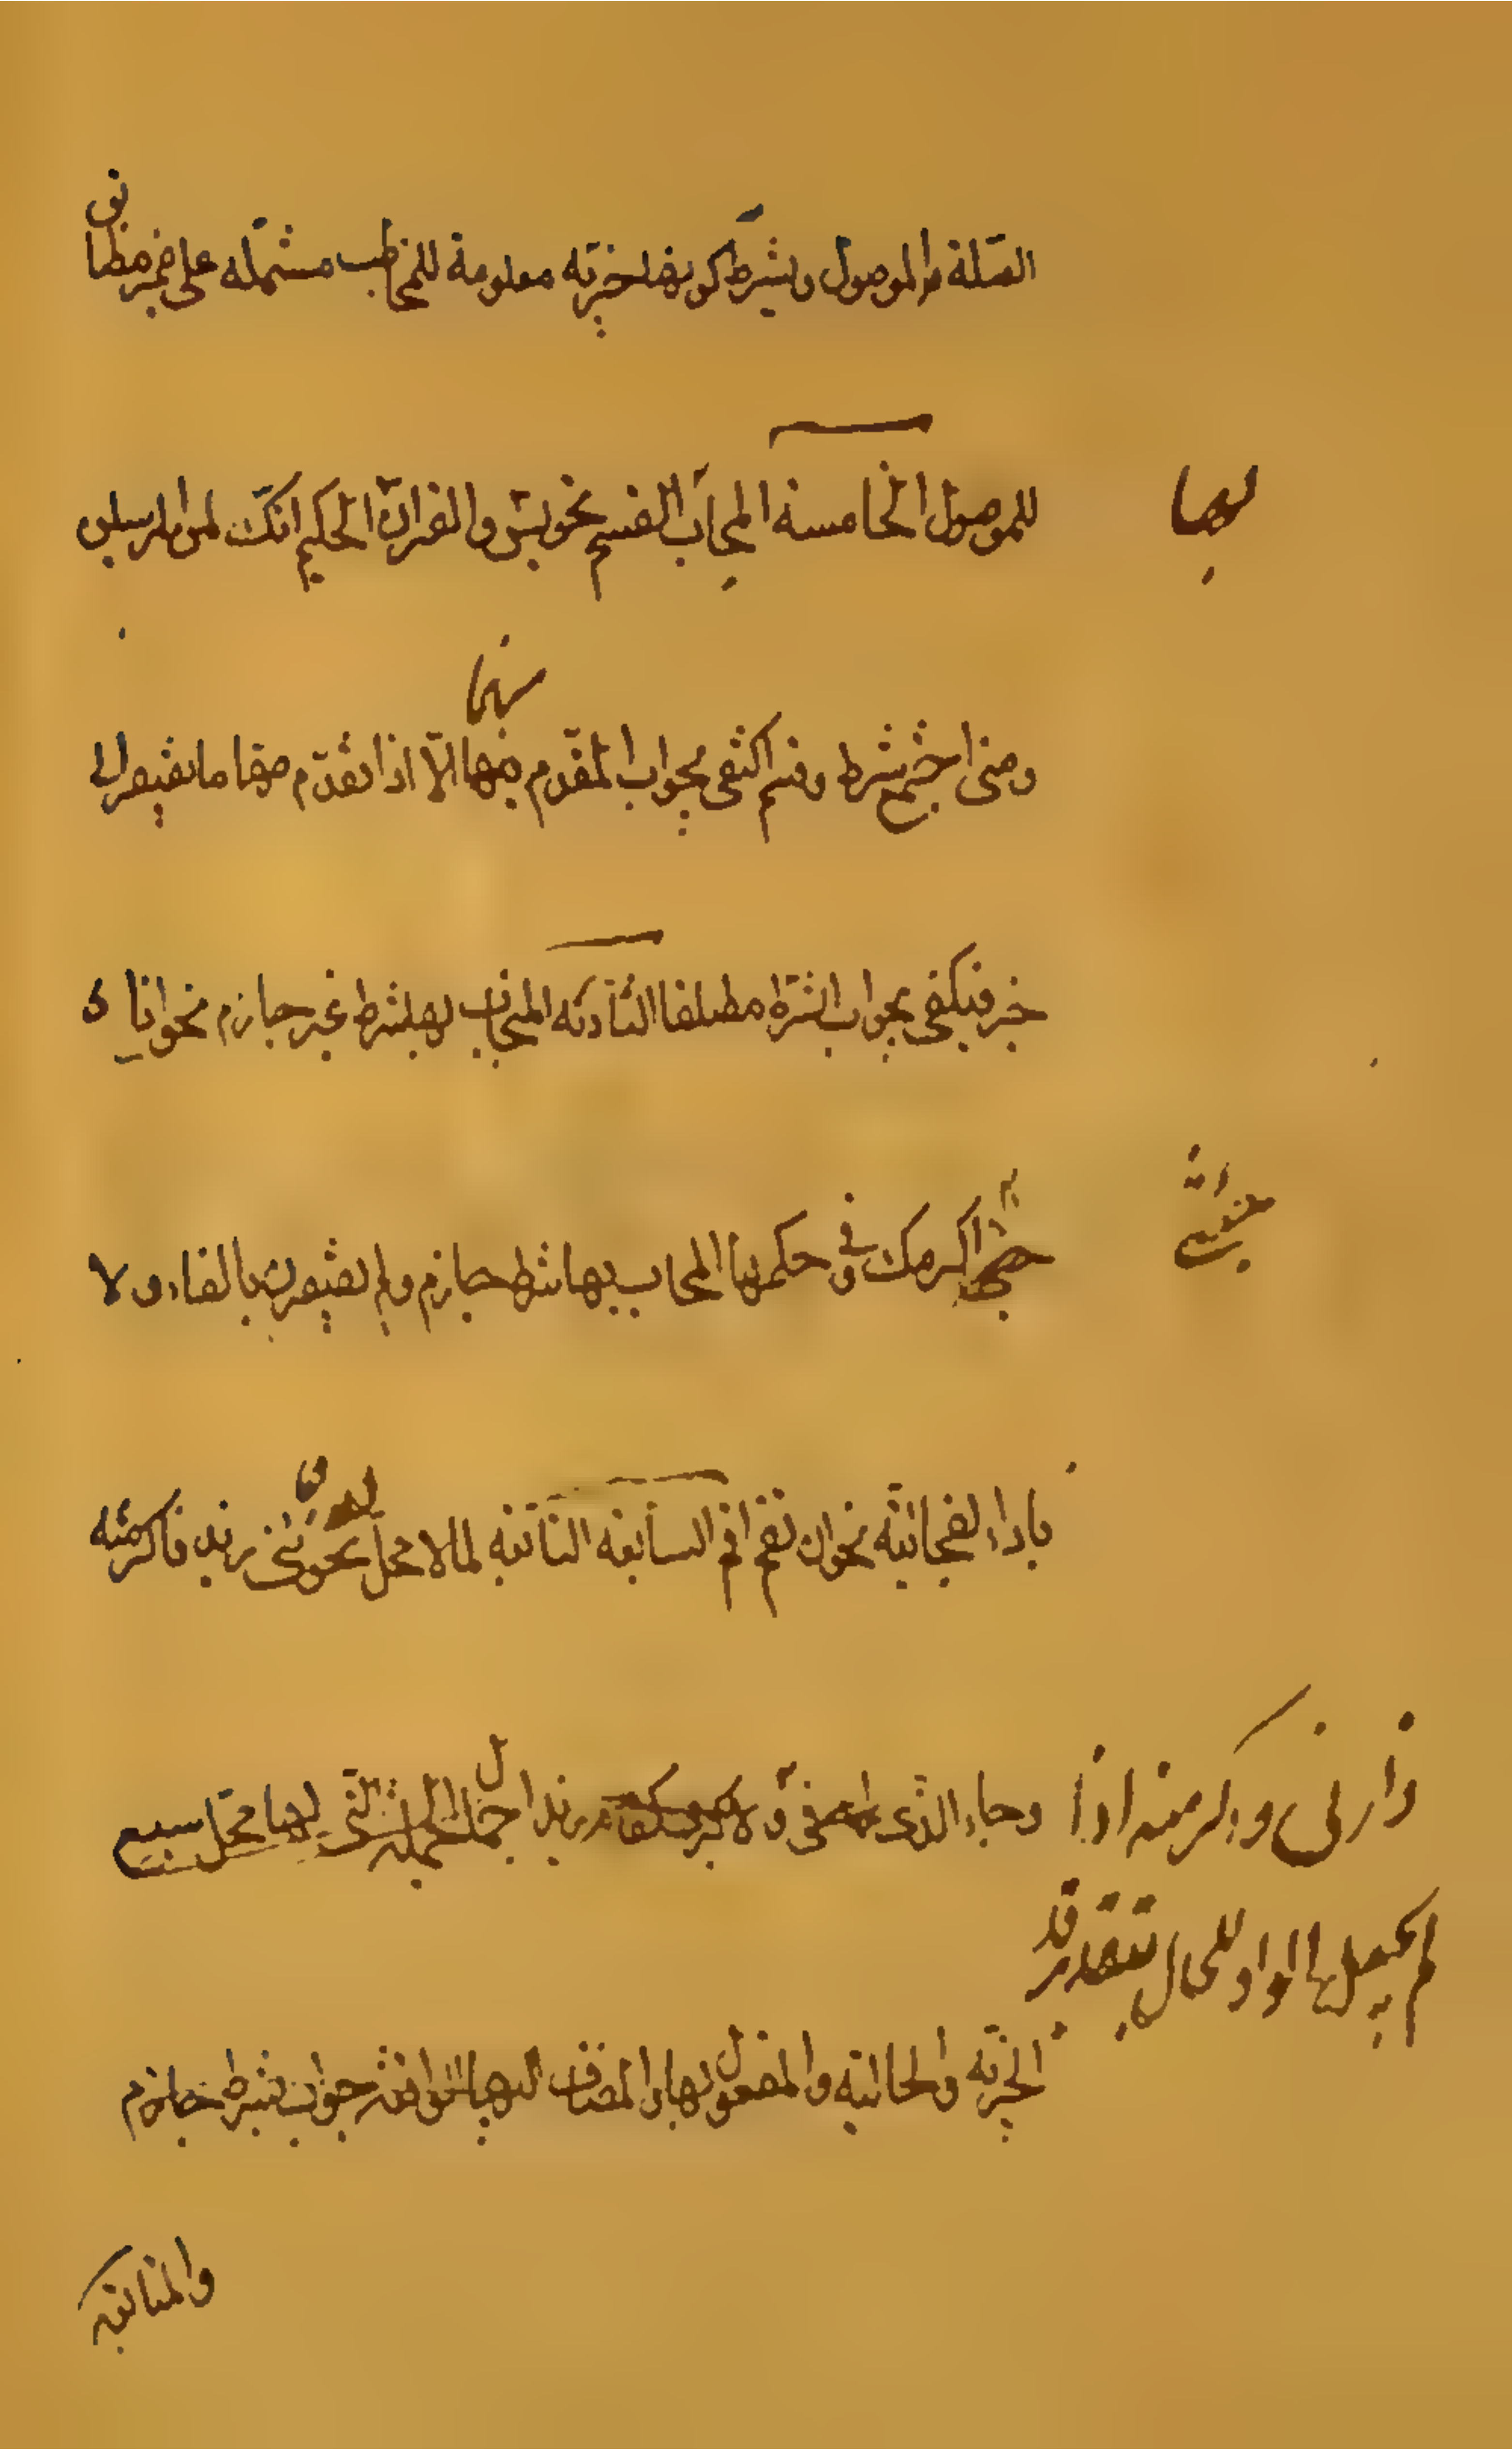 الصّلة والموصول ويشترط كونها خبريّه معلومة للمخاطب مشتملة على ضمير مطابق
للموصول الخامسة المجاب بها القسم نحو يس والقران الحكيم انّك لمن المرسلين
ومتى اجتمع شرط وقسم اكتفى بجواب المقدم منهما الّا اذا تقدّم هما ما يفتقر الى
خبر فيكتفى بجواب الشرط مطلقا السّادسة المجاب بها شرط غير جازم نحو اذا
جئتنى اكرمتك وفى حكمها المجاب بها شرط جازم ولم يقترن بالفاء ولا
باذا الفجائيّة نحو ان تقم اقم السابعة التابعة لما لا محل لها نحو جائنى زيد فاكرمته
زارنى واكرمته اذا وجاء الذى ولم زيدا جملة الجمل التى لها محل سبع
لم يجعل الواو للحال بتقدير قد
الخبريّة والحاليّة والمفعول بها والمضاف اليها والواقعة جوابا لشرط جازم
والتابعة